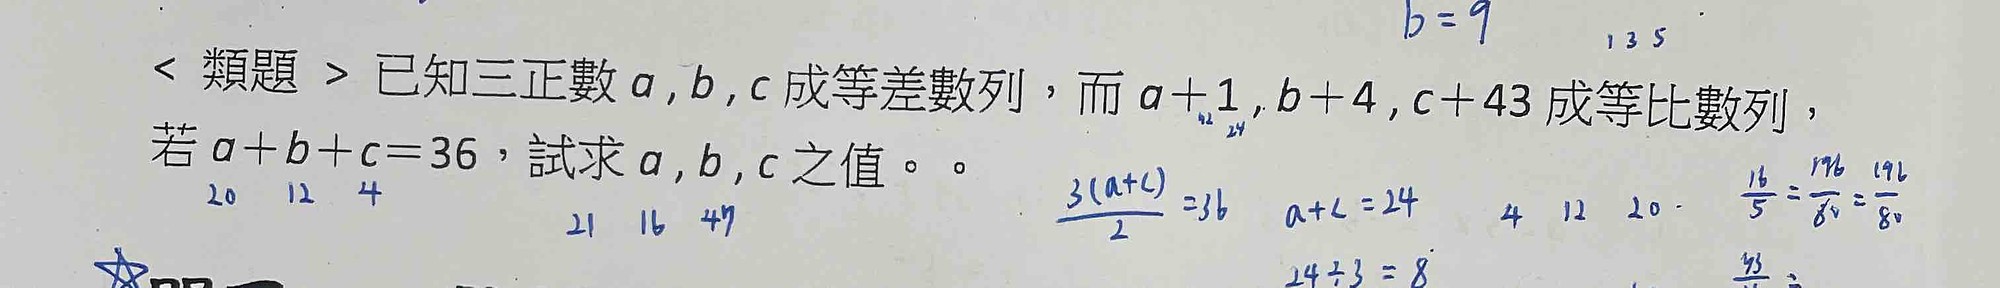 b=9
1 3 5
< 類題 > 已知三正數 a , b , c 成等差數列，而 a+1 , b+4 , c+43 成等比數列，
42 24
若 a+b+c=36，試求 a , b , c 之值。。
20 12 4
21 16 47
3(a+c)/2 =36
a+c=24
4 12 20.
16/5 = 196/80 = 196/80
24÷3=8